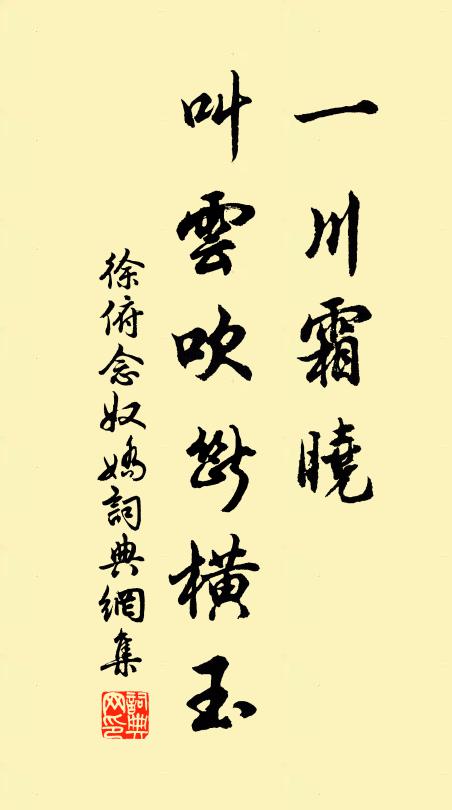 一川霜曉
叫雲吹斷橫玉
徐俯念奴嬌詞典網集
詞典网印